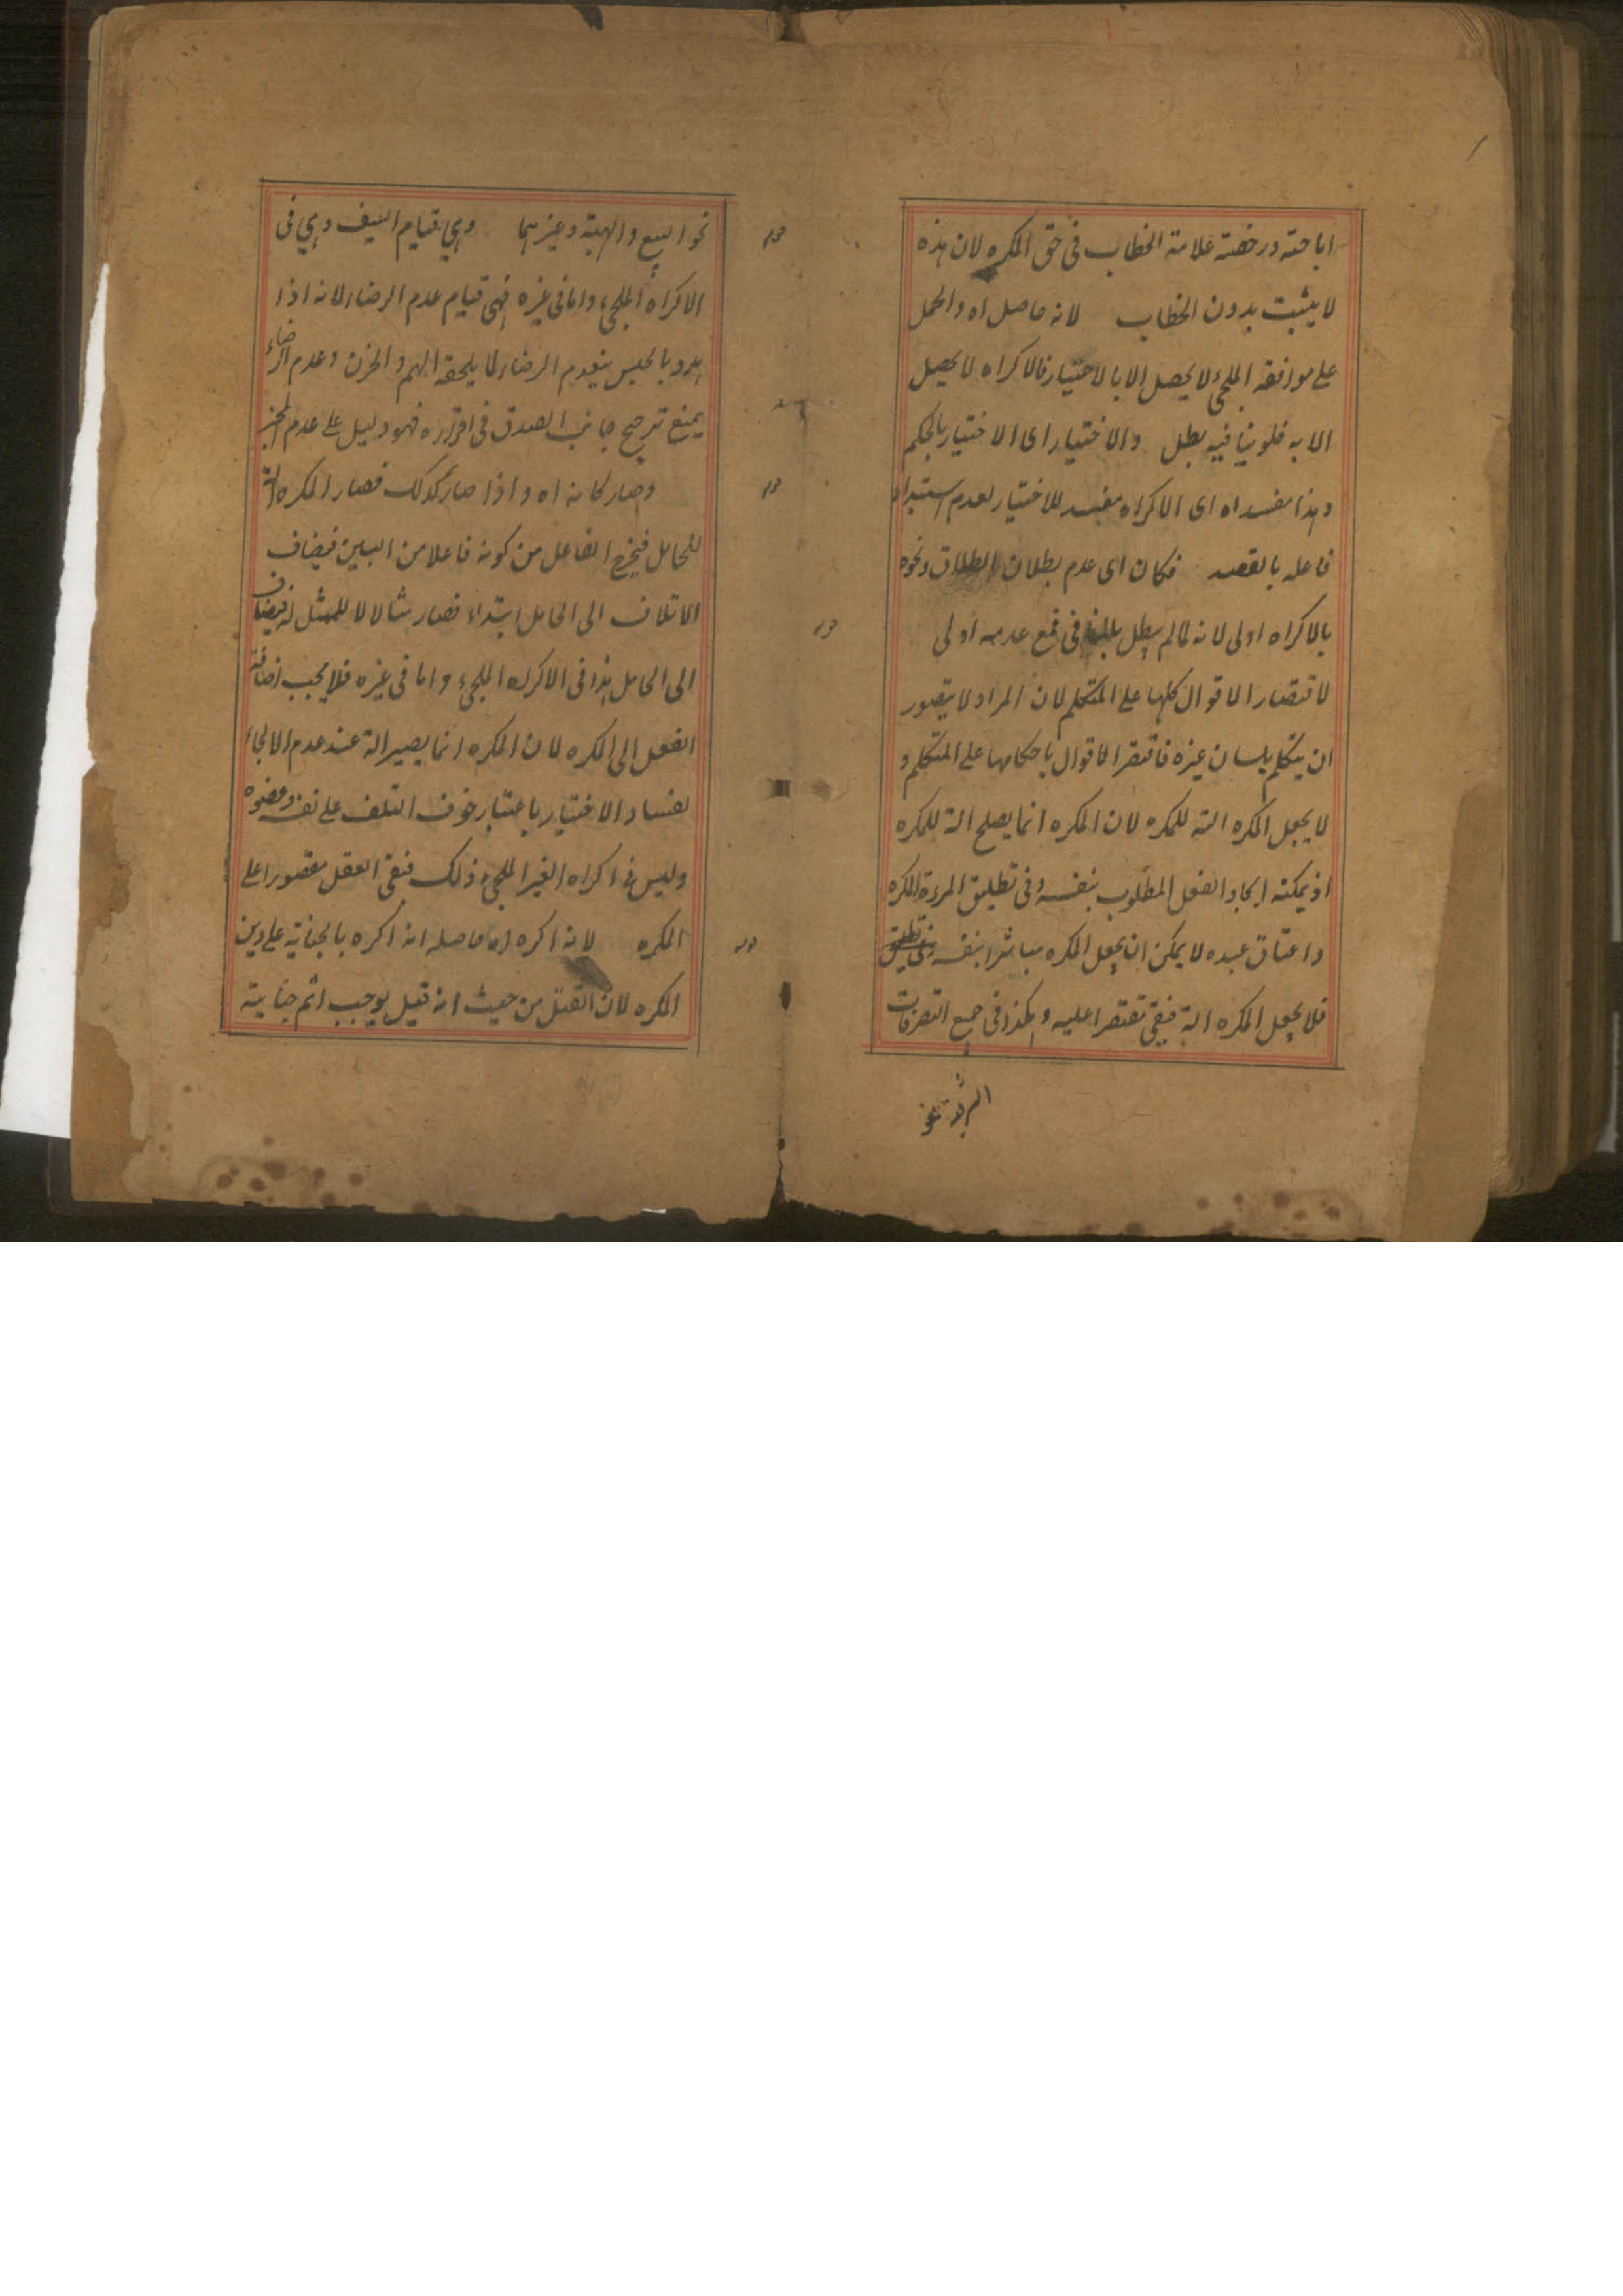 اباحته ورخصته علامة الخطاب فى حق المكره لان هذه
لا يثبت بدون الخطاب لانه حاصل اه والحمل
على موافقة الملجئ لا يحصل الا بالاختيار فالاكراه لا يحصل
الا به فلو ينافيه بطل والاختيار اى الاختيار بالحكم
وهذا مفسد اه اى الاكراه مفسد للاختيار لعدم استبداد
فاعله بالقصد فكان اى عدم بطلان الطلاق ونحوه
بالاكراه اولى لانه لما لم يبطل فى مع عدمه اولى
لاقتصار الاقوال كلها على المتكلم لان المراد لا يتصور
ان يتكلم بلسان غيره فاقتصر الاقوال باحكامها على المتكلم و
لا يجعل المكره الته للمكره لان المكره انما يصلح الة للمكره
اذ يمكنه ايجاد الفعل المطلوب بنفسه وفى تطليق المرءة المكره
واعتاق عبده لا يمكن ان يجعل المكره مباشرا بنفسه
فلا يجعل المكره الة فبقى مقتصرا عليه وهكذا فى جميع التصرفات
نحو البيع والهبة وغيرهما وهي قيام السيف وهي فى
الاكراه الملجئ واما فى غيره فهى قيام عدم الرضاء لانه اذا
هدد بالحبس ينعدم الرضاء لما يلحقه الهم والحزن وعدم الرضاء
يمنع ترجيح جانب الصدق فى اقراره فهو دليل على عدم المخبر
وصار كانه اه واذا صار كذلك فصار المكره الة
للحامل فيخرج الفاعل من كونه فاعلا من البين فيضاف
الاتلاف الى الحامل ابتداء فصار مثالا لا للممثل له فيضاف
الى الحامل هذا فى الاكراه الملجئ واما فى غيره فلا يجب اضافة
الفعل الى المكره لان المكره انما يصير الة عند عدم الالجاء
لفساد الاختيار باعتبار خوف التلف على نفسه وعضوه
وليس فى اكراه الغير الملجئ ذلك فبقى العقل مقصورا على
المكره لانه اكره اه حاصله انه اكره بالجناية على دين
المكره لان القتل من حيث انه قتيل يوجب اثم جناية